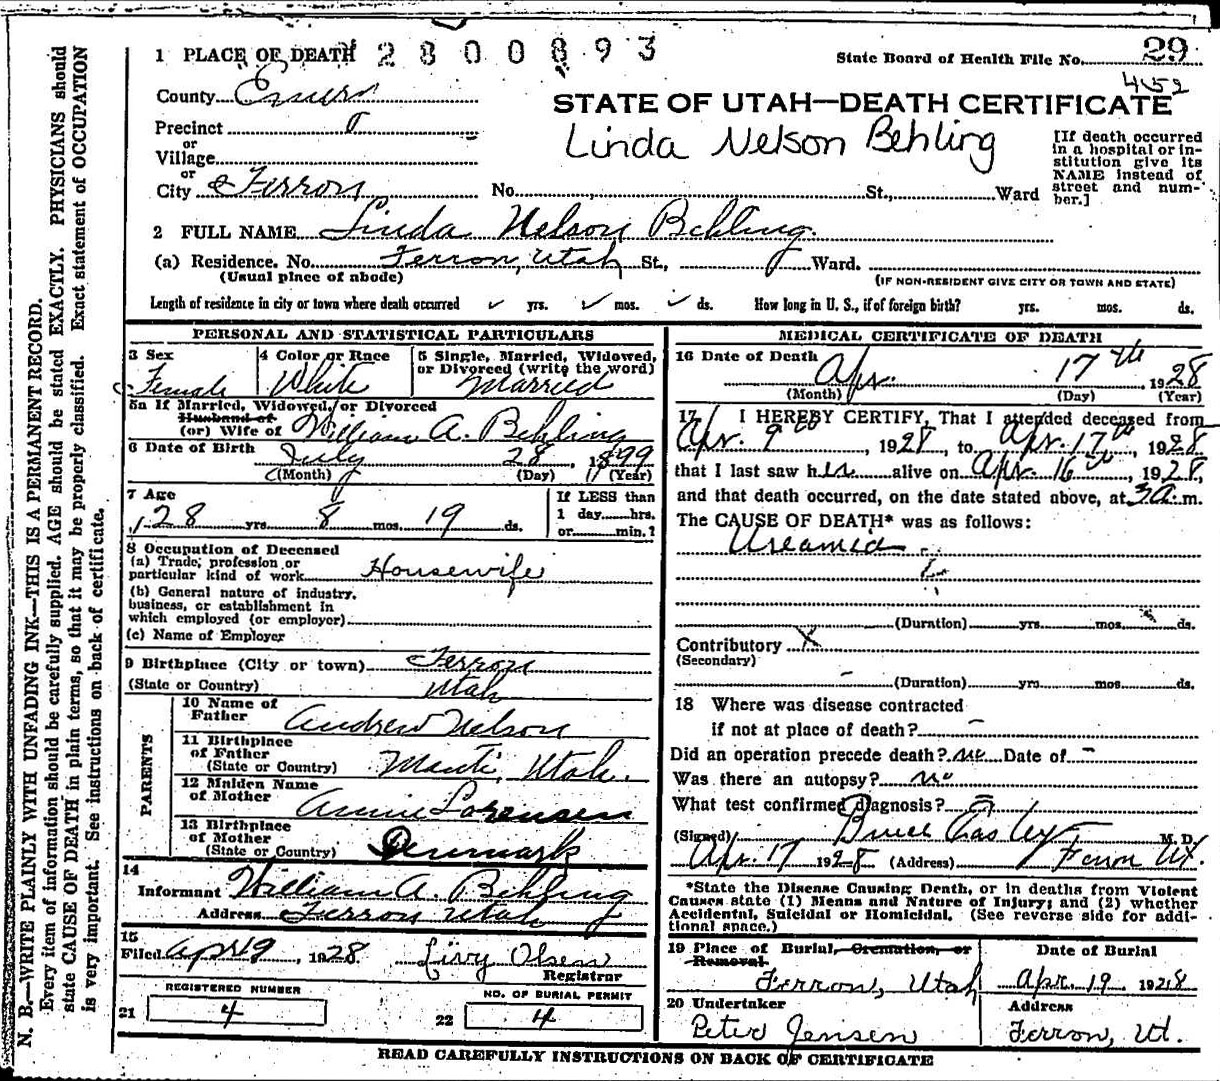 1 PLACE OF DEATH 2800893
State Board of Health File No. 29
452
County Emery
STATE OF UTAH—DEATH CERTIFICATE
Precinct
or
Village
Linda Nelson Behling
[If death occurred in a hospital or institution give its NAME instead of street and number.]
or
City Ferron No. St., Ward
2 FULL NAME Linda Nelson Behling.
(a) Residence. No. Ferron, Utah St., Ward.
(Usual place of abode) (IF NON-RESIDENT GIVE CITY OR TOWN AND STATE)
Length of residence in city or town where death occurred yrs. mos. ds. How long in U. S., if of foreign birth? yrs. mos. ds.
PERSONAL AND STATISTICAL PARTICULARS
3 Sex 4 Color or Race 5 Single, Married, Widowed,
or Divorced (write the word)
Female White Married
5a If Married, Widowed, or Divorced
Husband of
(or) Wife of William A. Behling
6 Date of Birth July 28, 1899
(Month) (Day) (Year)
7 Age If LESS than
1 day......hrs.
28 yrs. 8 mos. 19 ds. or......min.?
8 Occupation of Deceased
(a) Trade, profession or
particular kind of work Housewife
(b) General nature of industry,
business, or establishment in
which employed (or employer)
(c) Name of Employer
9 Birthplace (City or town) Ferron
(State or Country) Utah
PARENTS
10 Name of
Father Andrew Nelson
11 Birthplace
of Father
(State or Country) Manti, Utah.
12 Maiden Name
of Mother Annie Lorensen
13 Birthplace
of Mother
(State or Country) Denmark
14
Informant William A. Behling
Address Ferron Utah
15
Filed Apr 19, 1928 Livy Olsen
Registrar
REGISTERED NUMBER NO. OF BURIAL PERMIT
21 4 22 4
MEDICAL CERTIFICATE OF DEATH
16 Date of Death Apr. 17th, 1928
(Month) (Day) (Year)
17 I HEREBY CERTIFY, That I attended deceased from
Apr. 9th, 1928, to Apr. 17th, 1928
that I last saw her alive on Apr. 16th, 1928,
and that death occurred, on the date stated above, at 3 a. m.
The CAUSE OF DEATH* was as follows:
Ureamia
(Duration) yrs. mos. ds.
Contributory X
(Secondary)
(Duration) yrs. mos. ds.
18 Where was disease contracted
if not at place of death? -
Did an operation precede death? no Date of -
Was there an autopsy? no
What test confirmed Diagnosis?
(Signed) Bruce Easley M. D.
Apr. 17 1928 (Address) Ferron Ut.
*State the Disease Causing Death, or in deaths from Violent
Causes state (1) Means and Nature of Injury; and (2) whether
Accidental, Suicidal or Homicidal. (See reverse side for addi-
tional space.)
19 Place of Burial, Cremation, or
Removal Date of Burial
Ferron, Utah Apr. 19, 1928
20 Undertaker Address
Peter Jensen Ferron, Ut.
READ CAREFULLY INSTRUCTIONS ON BACK OF CERTIFICATE
N. B.—WRITE PLAINLY WITH UNFADING INK—THIS IS A PERMANENT RECORD.
Every item of information should be carefully supplied. AGE should be stated EXACTLY. PHYSICIANS should
state CAUSE OF DEATH in plain terms, so that it may be properly classified. Exact statement of OCCUPATION
is very important. See instructions on back of certificate.